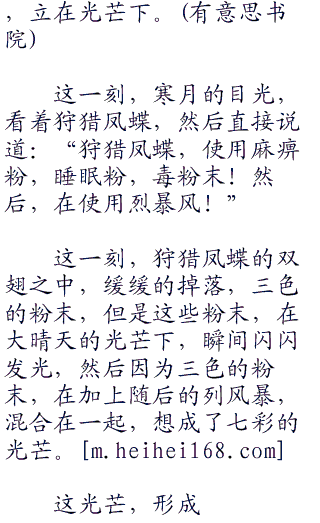 ，立在光芒下。(有意思书
院)
这一刻，寒月的目光，
看着狩猎凤蝶，然后直接说
道：“狩猎凤蝶，使用麻痹
粉，睡眠粉，毒粉末！然
后，在使用烈暴风！”
这一刻，狩猎凤蝶的双
翅之中，缓缓的掉落，三色
的粉末，但是这些粉末，在
大晴天的光芒下，瞬间闪闪
发光，然后因为三色的粉
末，在加上随后的列风暴，
混合在一起，想成了七彩的
光芒。[m.heihei168.com]
这光芒，形成